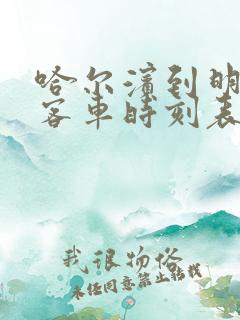 哈尔滨到明
客车时刻表
我很物俗
未经同意禁止转载